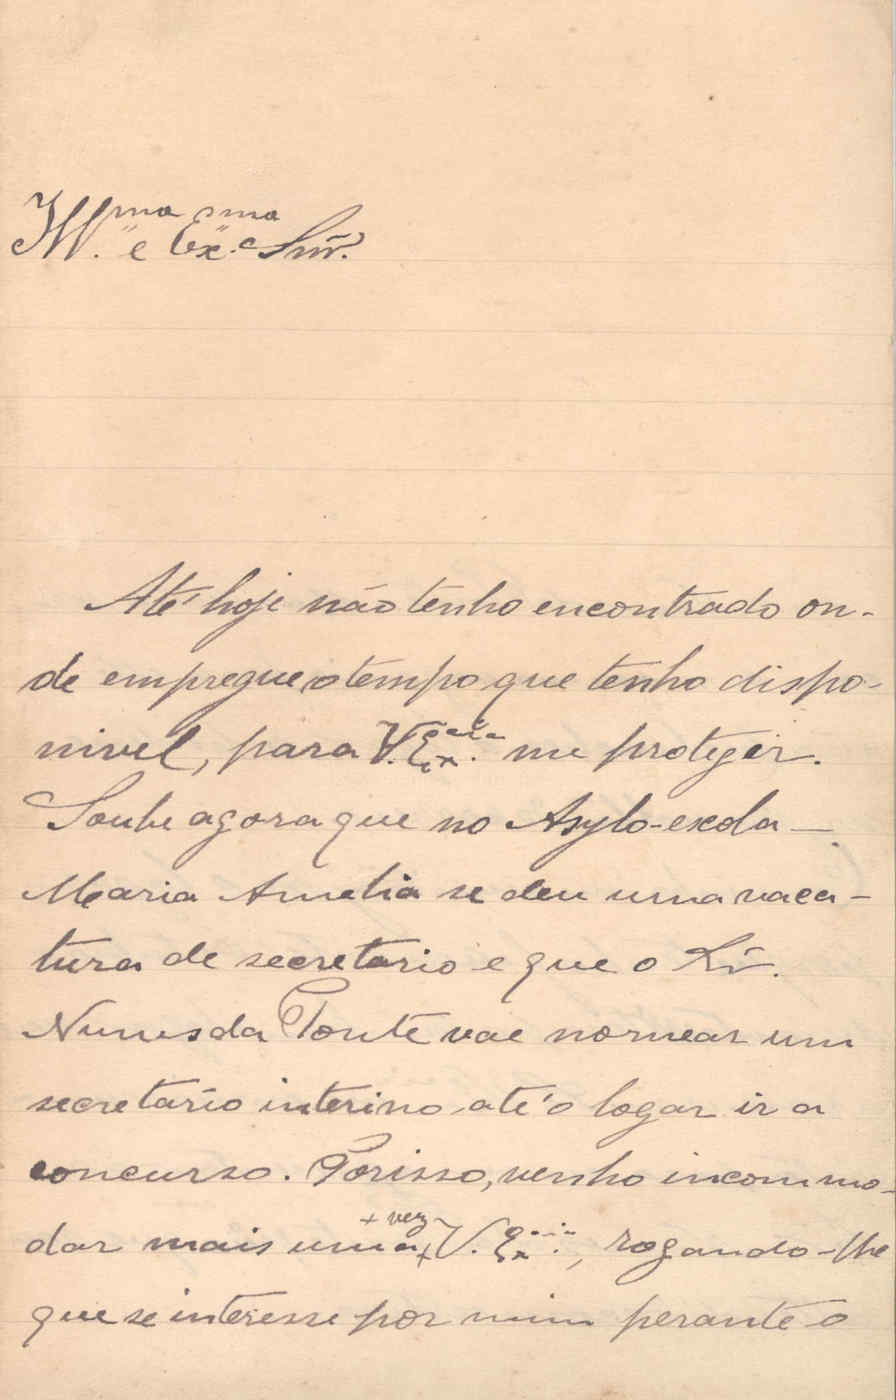 Ill.ma e Ex.ma Snr.
Até hoje não tenho encontrado on-
de empregue o tempo que tenho dispo-
nivel, para V. Ex.cia me proteger.
Soube agora que no Asylo-escola
Maria Amelia se deu uma vaca-
tura de secretario e que o Sr.
Nunes da Ponte vae nomear um
secretario interino até o logar ir a
concurso. Porisso, venho incommo-
+ vez
dar mais uma + V. Ex.cia, rogando-lhe
que se interesse por mim perante o